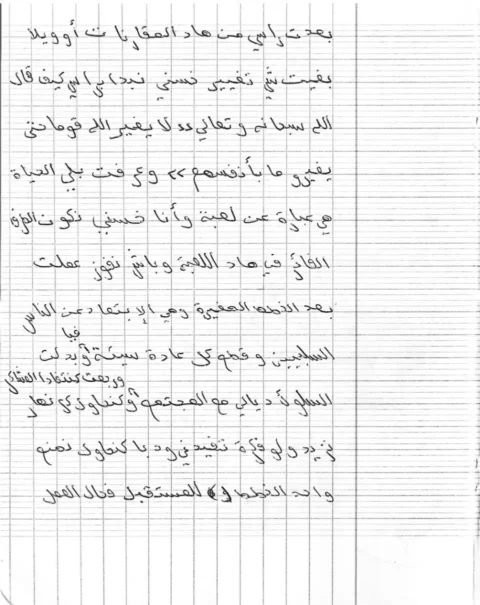 بعدت راسي من هاد المقارنات أو ويلا
بغيت شي تغيير خسني نبدا براسي كيف قال
الله سبحانه وتعالى "لا يغير الله قوما حتى
يغيرو ما بأنفسهم" وعرفت بلي الحياة
هي عبارة عن لعبة وأنا خسني نكون
الفائز في هاد اللعبة وباش نفوز عملت
بعد الخطط الصغيرة وهي الإبتعاد عن الناس
السلبيين وقطع كل عادة سيئة فيا أو بدلت
السلوك ديالي مع المجتمع ورجعت كنتفادا المشاكل أو كنحاول كل نهار
نزيد ولو فكرة تفيدني ودبا كنحاول نصنع
واحد الخطط للمستقبل فحال العمل